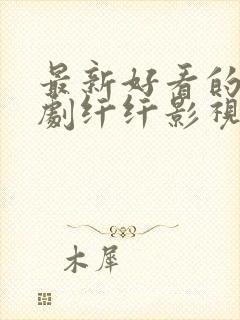 最新好看的
劇纤纤影視
木犀